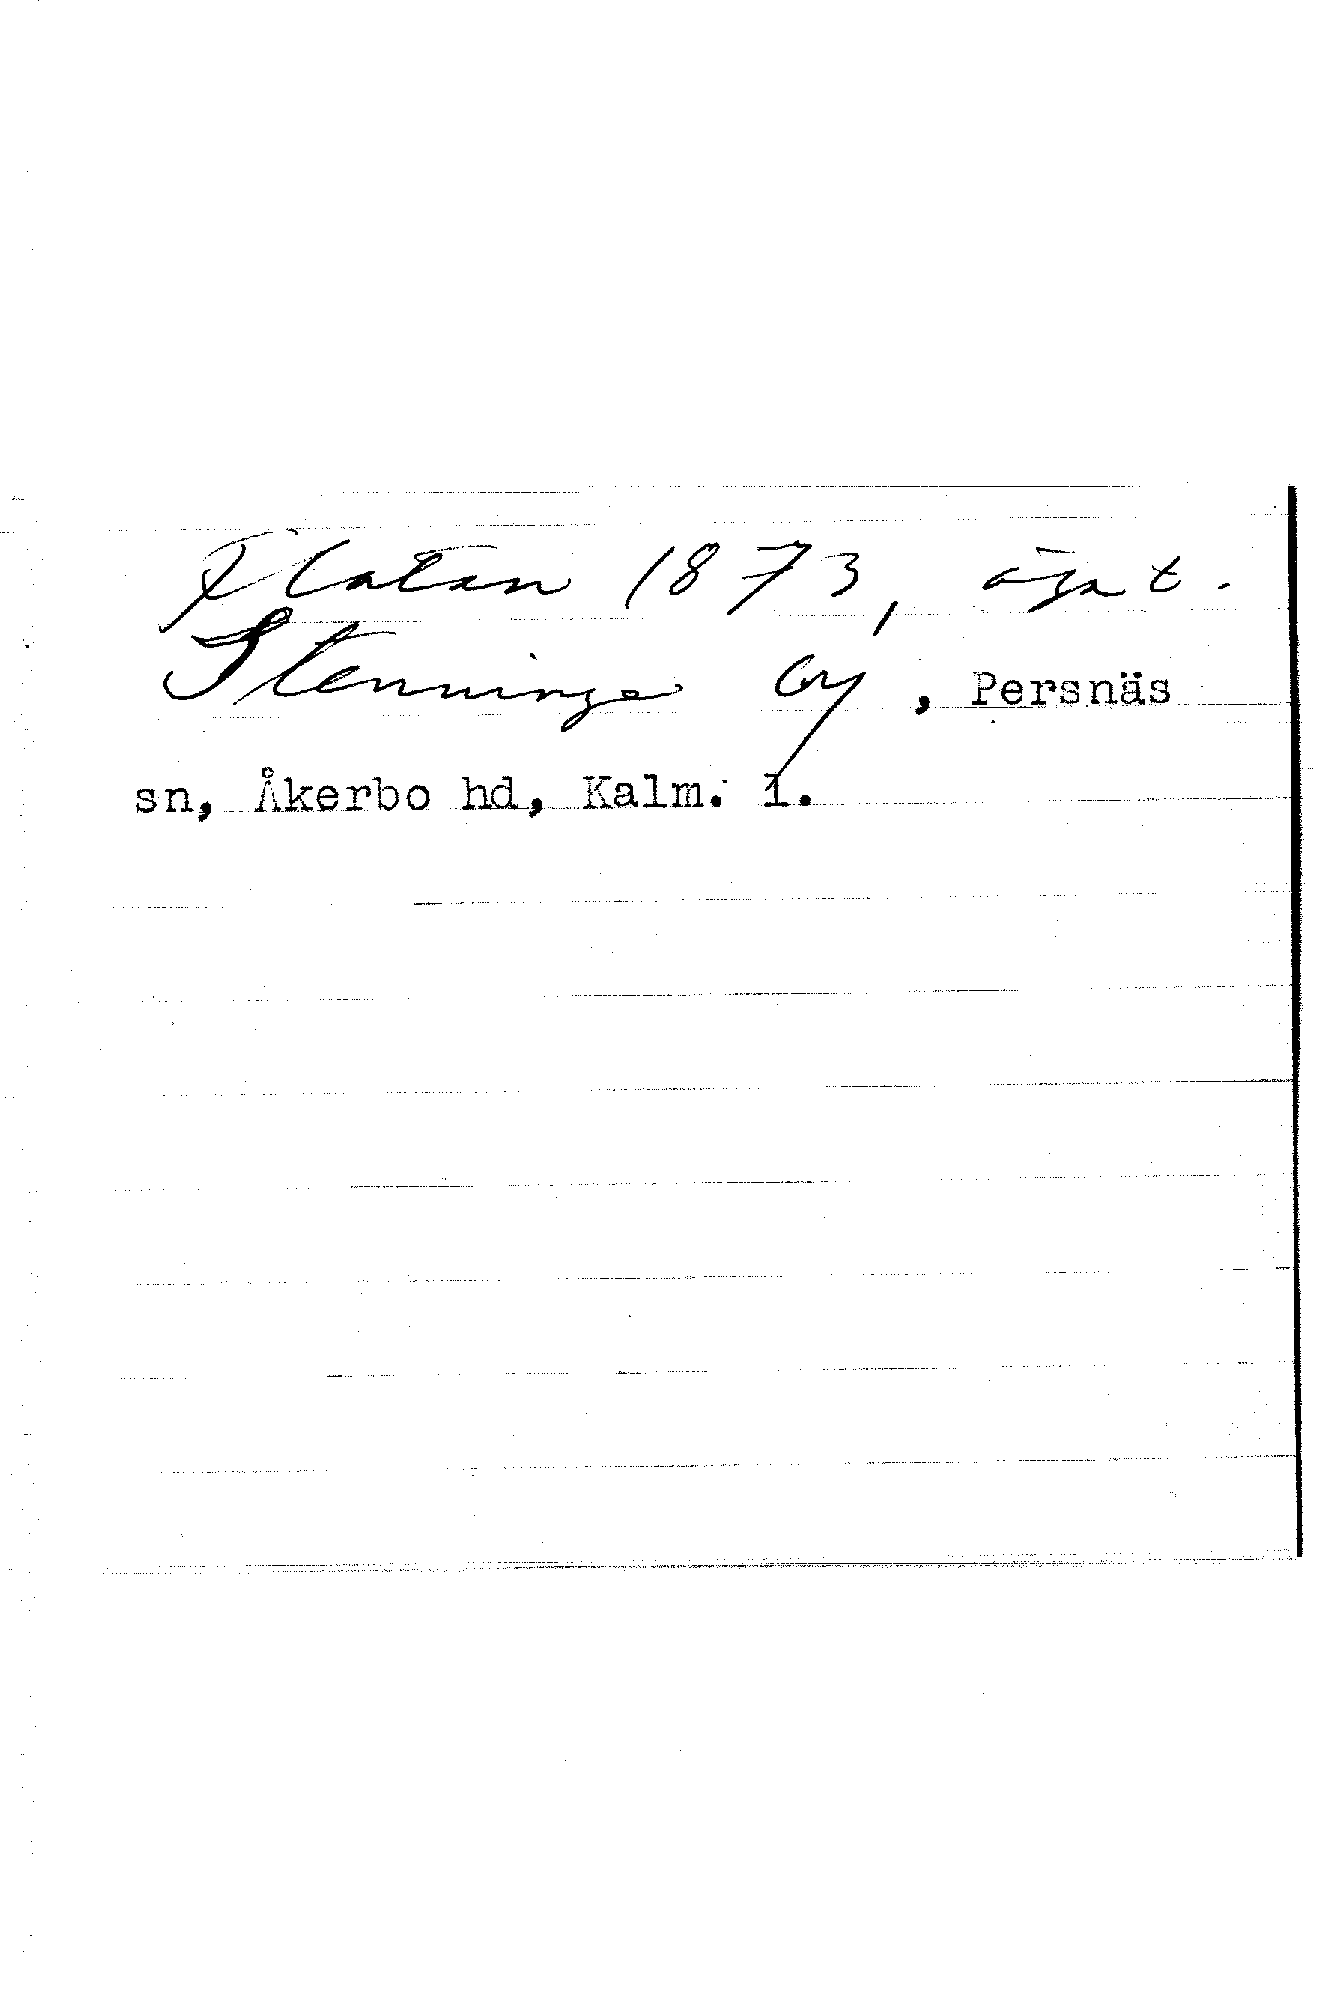 Flatan 1873, ägat.
Stenninge by, Persnäs
sn, Åkerbo hd, Kalm. l.